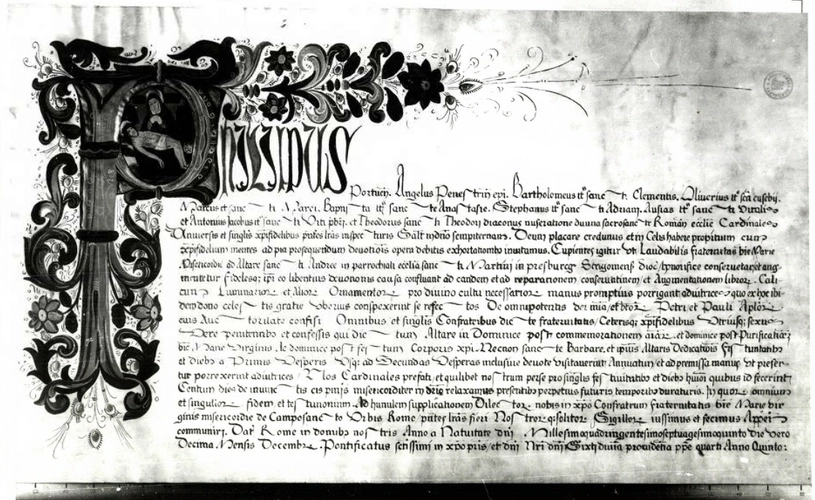 PHILIPUS
Portueñ. Angelus Penes trin epi. Bartholomeus tt sanc ti Clementis. Oliverius tt scã eusebij.
Marcus et sanc ti Marci. Baptis ta tt sanc te Anas tasie. Stephanus tt sanc ti Adriani. Ausias tt sanc te Vitalis
et Antonius Jacobus tt sanc ti Viti pbri et Theodorus sanc ti Theodorj Diaconus miseratione divina sacrosanc te Romañ ecclie Cardinales
Vniversis et singlis xpifidelibus pntes lras inspec turis Salt in dño sempiternam. Deum placare credimus et in Celis habere propitium cum
xpifidelium mentes ad pia prosequendum devotiois opera debitis exhortationibz invitamus. Cupientes igitur vt Laudabilis fraternitas bte Marie
Misericordie ad Altare sanc ti Andree in parrochiali ecclia sanc ti Martini in presburg Strigonieñ dioc honorifice conservetur et aug
mentetur fidelesqz ipi eo libentius devotionis causa confluant ad eandem et ad reparationem conservationem et Augmentationem libror Cali
cum Luminarior et Alior Ornamentor pro divino cultu necessarior manus promptius porrigant adiutrices quo ex hoc ibi
dem dono celes tis gratie vberius conspexerint se refec tos De omnipotentis dei mia et btor Petri et Pauli Aplor
eius Auc toritate confisi Omnibus et singlis Confratribus dic te fraternitatis Ceterisqz xpifidelibus Vtriusqz sexus
Vere penitentibz et confessis qui dic tum Altare in Dominice post commemorationem aiar, et dominice post Purificationem
bte Marie Virginis, le dominice post fes tum Corporis xpi Necnon sanc te Barbare, et ipius Altaris Dedicationis fes tivitatibz
et diebz a Primis Vesperis Vsqz ad Secundas Vesperas inclusive devote visitaverint Annuatim et ad premissa manus vt prefer
tur porrexerint adiutrices Nos Cardinales prefati et quilibet nos trum per se pro singlis fes tivitatibz et diebz huiusmodi quibus id fecerint
Centum dies de iniunc tis eis pnijs misericorditer in dño relaxamus presentibus perpetuis futuris temporibz duraturis. In quor omnium
et singulor fidem et tes timonium Ad humilem supplicationem Dilec tor nobis in xpo Confratrum fraternitatis bte Marie vir
ginis misericordie de Composanc to Vrbis Rome pntes lras fieri Nos trorqz solitor Sigillor iussimus et fecimus Appen
communiri. Dat Rome in domibus nos tris Anno a Nativitate dñi Millesimoquadringentesimoseptuagesimoquinto die vero
Decima Mensis Decembr. Pontificatus sctissimi in xpo pris et dñi Nri dñi Sixti divina providentia ppe quarti Anno Quinto: